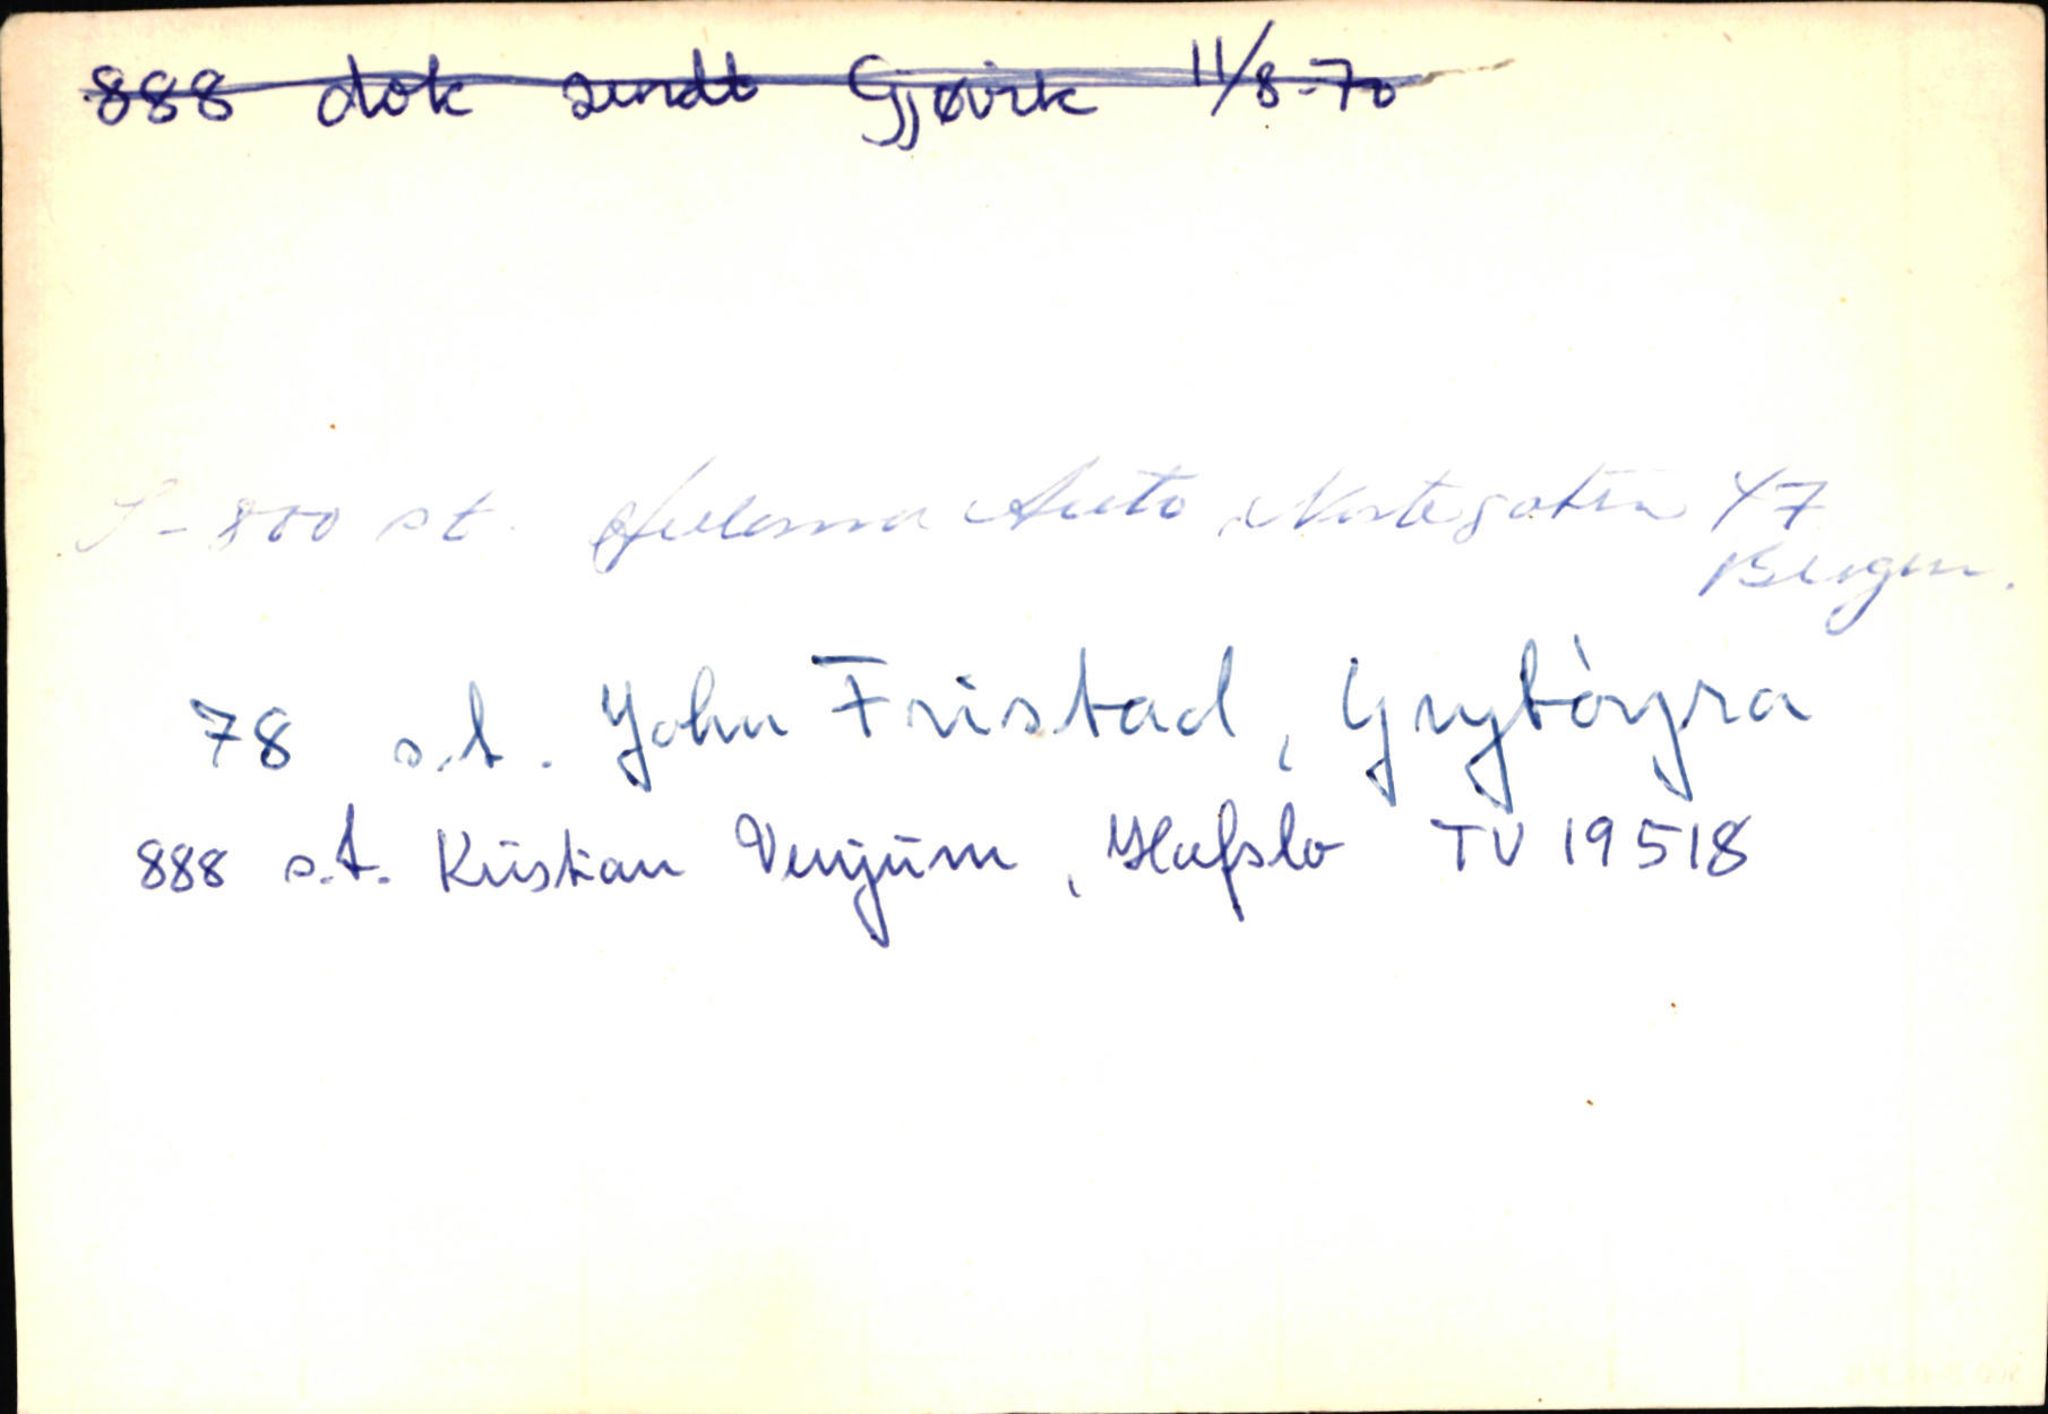 888 dok sendt Gjøvik 11/8-70
S-800 st. Auto Nostegaten 47
Bergen.
78 s.t. John Fristad, Grytòyra
888 s.t. Kristian Venjum, Hafslo TV 19518